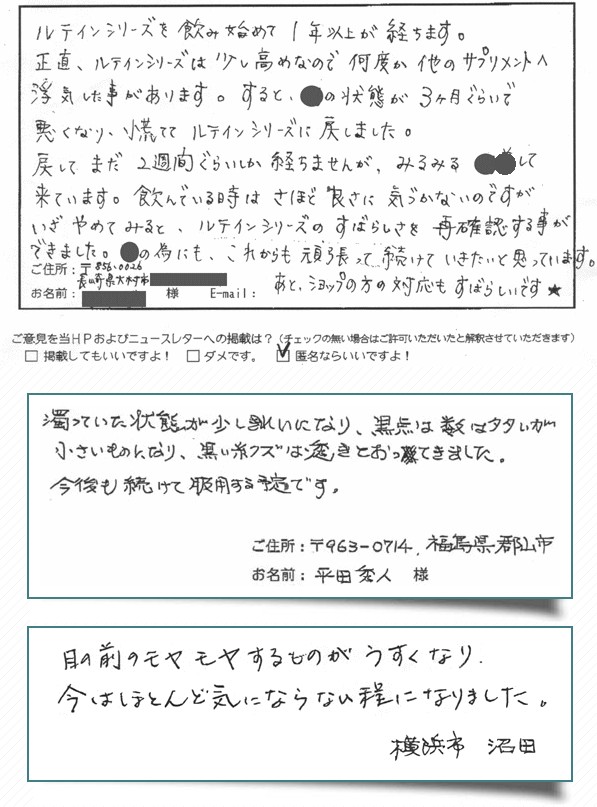 ルテインシリーズを飲み始めて1年以上が経ちます。
正直、ルテインシリーズは少し高めなので何度か他のサプリメントへ
浮気した事があります。すると、●の状態が3ヶ月ぐらいで
悪くなり、慌ててルテインシリーズに戻しました。
戻してまだ2週間ぐらいしか経ちませんが、みるみる●●して
来ています。飲んでいる時はさほど良さに気づかないのですが
いざやめてみると、ルテインシリーズのすばらしさを再確認する事が
できました。●の為にも、これからも頑張って続けていきたいと思っています。
ご住所：〒856-0026
長崎県大村市
あと、ショップの方の対応もすばらしいです★
お名前： 様 E-mail：
ご意見を当HPおよびニュースレターへの掲載は？（チェックの無い場合はご許可いただいたと解釈させていただきます）
□ 掲載してもいいですよ！ □ ダメです。 ☑ 匿名ならいいですよ！
濁っていた状態が少しきれいになり、黒点は数はタタいが
小さいものになり、黒い糸クズは透きとおってきました。
今後も続けて服用する予定です。
ご住所：〒963-0714, 福島県郡山市
お名前：平田秀人 様
目の前のモヤモヤするものがうすくなり、
今はほとんど気にならない程になりました。
横浜市 沼田